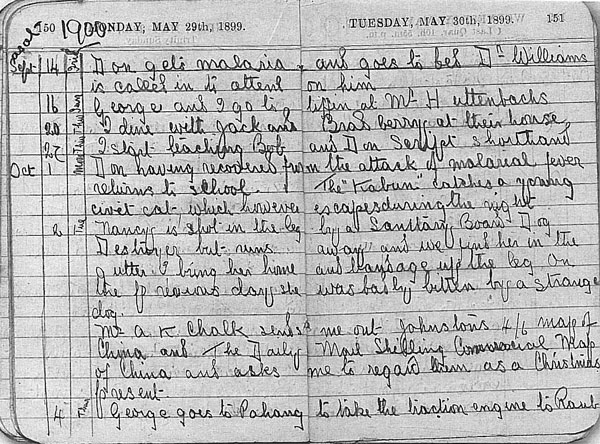 150 MONDAY, MAY 29th, 1899. TUESDAY, MAY 30th, 1899. 151
1900
Sept 14 Fri Don gets malaria and goes to bed Dr Williams
is called in to attend on him
16 Sun George and I go to tiffin at Mr Huttenbachs
20 Thu I dine with Jack and Bradbery at their house
27 Thu I start teaching Bob and Don Script shorthand
Oct 1 Mon Don having recovered from the attack of malarial fever
returns to school. The "Kabun" catches a young
civet cat which however escapes during the night
2 Tue Nancy is shot in the leg by a Sanitary Board Dog
Destroyer but runs away and we find her in the
gutter I bring her home and bandage up the leg On
the previous day she was badly bitten by a strange
dog.
Mr A K Chalk sends me out Johnston's 4/6 map of
China and The Daily Mail Shilling Commercial Map
of China and asks me to regard them as a Christmas
present.
4 Thu George goes to Pahang to take the traction engine to Raub